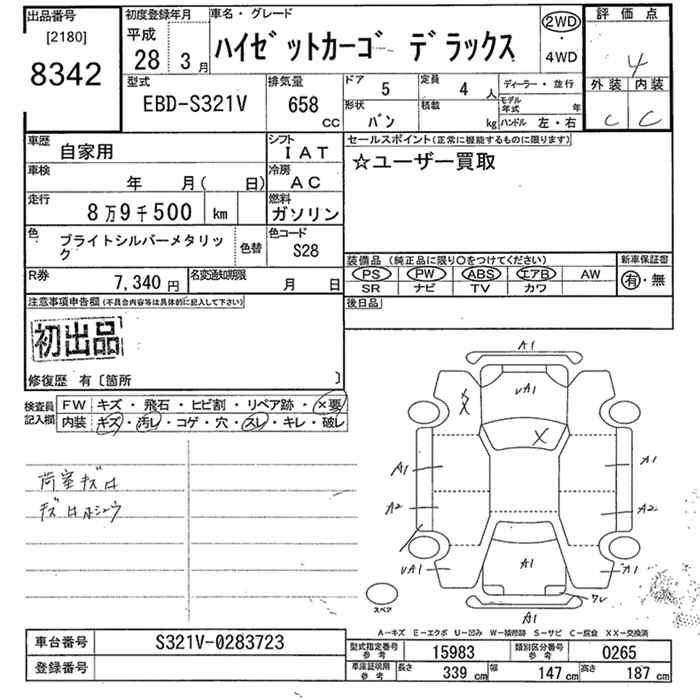 出品番号
[2180]
8342
初度登録年月
平成
28 3月
車名・グレード
ハイゼットカーゴ デラックス
2WD
・
4WD
評価点
4
外装 内装
C C
型式
EBD-S321V
排気量
658 CC
ドア 5
定員 4 人
形状 バン
積載 kg
ディーラー・並行
モデル年式 年
ハンドル 左・右
車歴 自家用
シフト IAT
車検 年 月( 日)
冷房 AC
走行 8万9千500 km
燃料 ガソリン
色 ブライトシルバーメタリック
色替
色コード S28
R券 7,340 円
名変通知期限 月 日
セールスポイント(正常に機能するものに限ります)
☆ユーザー買取
装備品 (純正品に限り○をつけてください)
PS PW ABS エアB AW
SR ナビ TV カワ
新車保証書
有・無
後日品
注意事項申告欄(不具合内容等は具体的に記入して下さい)
初出品
修復歴 有〔箇所 〕
検査員記入欄
FW キズ・飛石・ヒビ割・リペア跡・×要
内装 キズ・汚レ・コゲ・穴・スレ・キレ・破レ
荷室キズ大
A1
UA1
X
X
A1 A1
A2 A2
UA1 A1 A1
ワレ
A1
スペア
A-キズ E-エクボ U-凹み W-補修跡 S-サビ C-腐食 XX-交換済
車台番号 S321V-0283723
登録番号
型式指定番号 参考 15983
類別区分番号 参考 0265
車庫証明用 参考 長さ 339 cm 幅 147 cm 高さ 187 cm